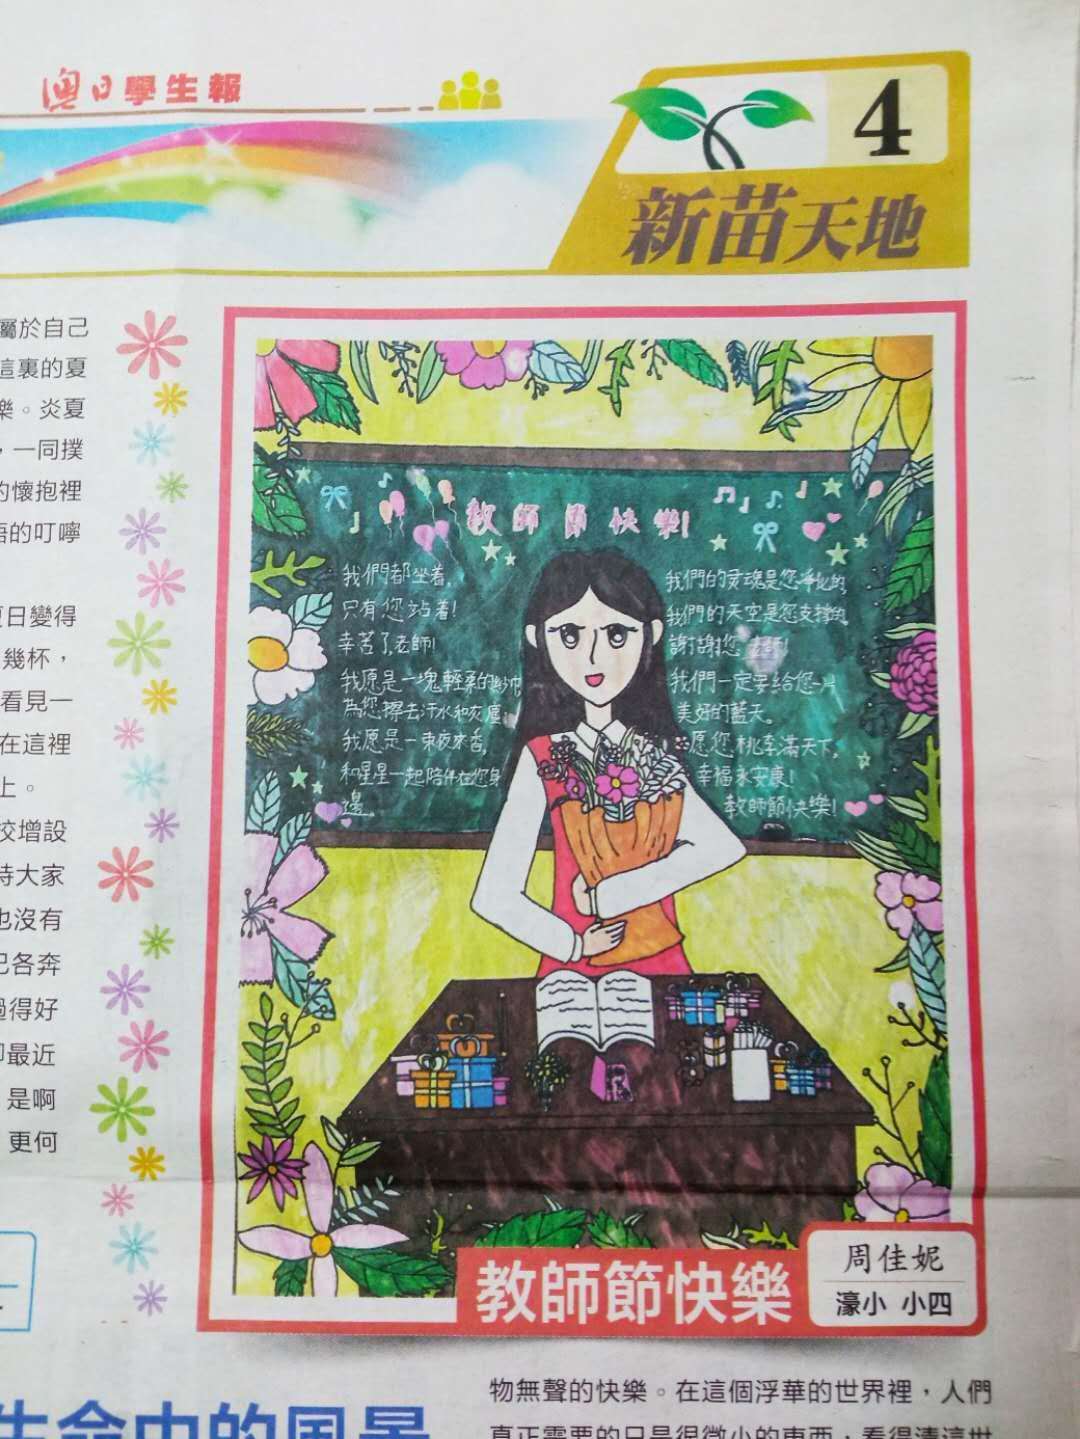 澳日學生報
4
新苗天地
屬於自己
這裏的夏
樂。炎夏
，一同撲
的懷抱裡
語的叮嚀
夏日變得
幾杯，
看見一
在這裡
上。
校增設
待大家
也沒有
已各奔
過得好
卻最近
是啊
更何
教師節快樂!
我們都坐着,
只有您站着!
辛苦了老師!
我愿是一塊輕柔的紗巾
為您擦去汗水和灰塵,
我愿是一束夜來香,
和星星一起陪伴在您身
邊。
我們的灵魂是您净化的,
我們的天空是您支撐的,
謝謝您 老師!
我們一定要給您一片
美好的藍天。
愿您桃李滿天下,
幸福永安康!
教師節快樂!
教師節快樂
周佳妮
濠小 小四
生命中的風景
物無聲的快樂。在這個浮華的世界裡，人們
真正需要的只是很微小的東西，看得清這世